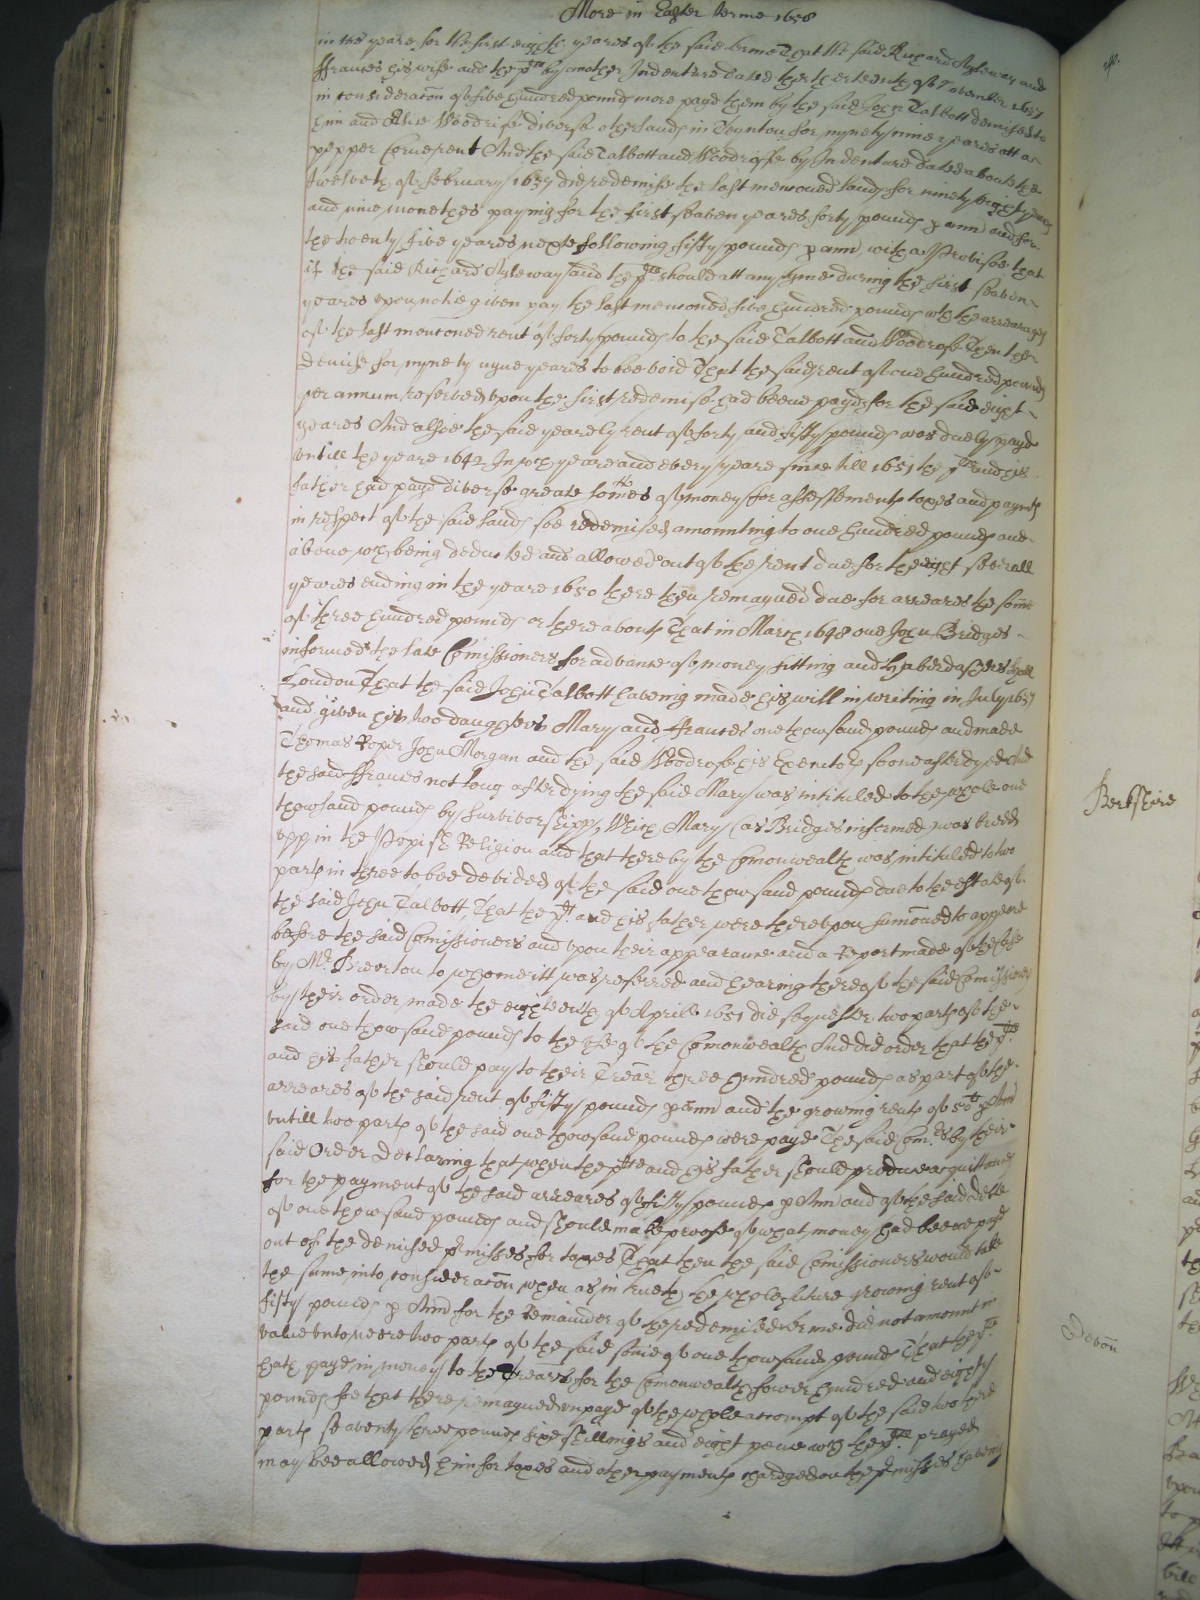 More in Easter terme 1658
in the yeare for the first eight yeares of the said terme That the said Richard Ayleway and
ffrances his wife and the plt by another Indenture dated the thirteenth of November 1637
in consideracon of five hundred pounds more payd them by the said John Talbott demised to
him and Woodrofe diverse other lands in Teynton for nynety nine yeares att a
pepper Corne rent And the said Talbott and Woodrofe by Indenture dated about the
twelveth of February 1637 did redemise the last menconed lands for ninety eight yeares
and nine monethes paying for the first seaven yeares forty pounds p ann and for
the twenty five yeares next following fifty pounds p ann, with a Proviso that
if the said Richard Ayleway and the plte should att any tyme during the first seaven
yeares upon notice given pay the last menconed five hundred pounds wth the arrearages
of the last menconed rent of forty pounds to the said Talbott and Woodrofe Then the
demise for nynety nyne yeares to bee void That the said rent of one hundred pounds
per annum reserved upon the first redemise had beene payd for the said eight
yeares And alsoe the said yearely rent of forty and fifty pounds was duely payd
untill the yeare 1642 In wch yeare and every yeare since till 1651 the plt and his
father had payd diverse greate somes of money for assessements taxes and paymts
in respect of the said lands soe redemised amounting to one hundred pounds and
above wch being deducted and allowed out of the rent due for the eight severall
yeares ending in the yeare 1650 there then remayned due for arreares the some
of three hundred pounds or thereabouts That in March 1648 one John Bridges
informed the late Comissioners for advance of money sitting att Haberdashers hall
London That the said John Talbott haveing made his will in writing in July 1637
and given his two daughters Mary and ffrances one thowsand pounds and made
Thomas Roper John Morgan and the said Woodrofe his Executors soone after dyed And
the said ffrances not long after dying the said Mary was intituled to the whole one
thowsand pounds by Survivorshipp, Which Mary (as Bridges informed) was breed
upp in the Popish Religion and that thereby the Comonwealth was intituled to two
parts in three to bee devided of the said one thowsand pounds due to the estate of
the said John Talbott, That the plt and his father were thereupon sumoned to appeare
before the said Comissioners and upon their appearance and a Report made of the case
by Mr Brereton to whome itt was referred and hearing thereof the said Comissioners
by their order, made the eighteenth of Aprill 1651 did sequester two parts of the
said one thowsand pounds to the use of the Comonwealth And did order that the plte
and his father should pay to their Treasr. three hundred pounds as part of the
arreares of the said rent of fifty pounds p ann and the growing rents of 50li p Ann
untill two parts of the said one thowsand pounds were payd The said Comrs by their
said Order Declaring that when the plte and his father should produce acquittances
for the payment of the said arreares of fifty pounds p Ann and of the said debt
of one thowsand pounds and should make proofe of what money had beene payd
out of the demised pmisses for taxes That then the said Comissioners would take
the same into consideracon when as in trueth the whole future growing rent of
fifty pounds p Ann for the remainder of the redemised terme did not amount in
value unto neere two parts of the said some of one thowsand pounds That the plte
hath payd in money to the Treasrs for the Comonwealth fower hundred and eighty
pounds soe that there remayned unpayd of the whole accompt of the said two third
parts seaventy three pounds six shillings and eight pence wch the plte prayed
may bee allowed him for taxes and other payments chardged on the pmisses haveing
Berkshire
Devon